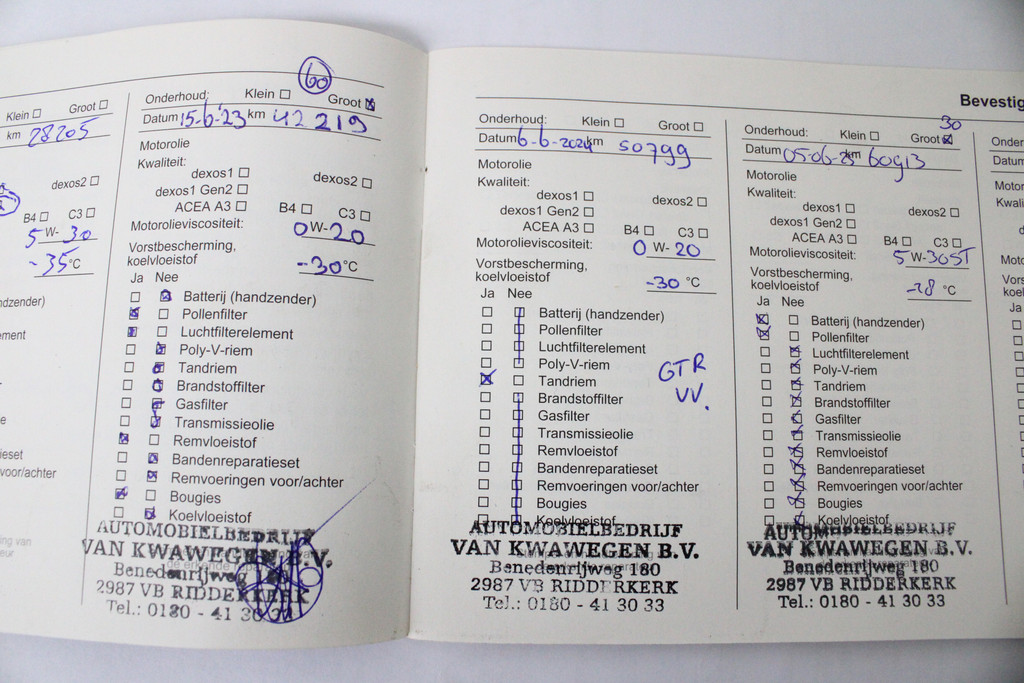 Klein ☐ Groot ☐
km 28205
dexos2 ☐
B4 ☐ C3 ☐
5 W- 30
-35 °C
60
Onderhoud: Klein ☐ Groot ☒
Datum 15-6-'23 km 42 219
Motorolie
Kwaliteit:
dexos1 ☐ dexos2 ☐
dexos1 Gen2 ☐
ACEA A3 ☐ B4 ☐ C3 ☐
Motorolieviscositeit: 0 W- 20
Vorstbescherming,
koelvloeistof -30 °C
Ja Nee
☐ ☒ Batterij (handzender)
☒ ☐ Pollenfilter
☒ ☐ Luchtfilterelement
☐ ☒ Poly-V-riem
☐ ☒ Tandriem
☐ ☒ Brandstoffilter
☐ ☒ Gasfilter
☐ ☒ Transmissieolie
☒ ☐ Remvloeistof
☐ ☒ Bandenreparatieset
☐ ☒ Remvoeringen voor/achter
☒ ☐ Bougies
☐ ☒ Koelvloeistof
AUTOMOBIELBEDRIJF
VAN KWAWEGEN B.V.
Benedenrijweg 180
2987 VB RIDDERKERK
Tel.: 0180 - 41 30 33
Onderhoud: Klein ☐ Groot ☐
Datum 6-6-2024 km 50799
Motorolie
Kwaliteit:
dexos1 ☐ dexos2 ☐
dexos1 Gen2 ☐
ACEA A3 ☐ B4 ☐ C3 ☐
Motorolieviscositeit: 0 W- 20
Vorstbescherming,
koelvloeistof -30 °C
Ja Nee
☐ ☐ Batterij (handzender)
☐ ☐ Pollenfilter
☐ ☐ Luchtfilterelement
☐ ☐ Poly-V-riem
☒ ☐ Tandriem
☐ ☐ Brandstoffilter
☐ ☐ Gasfilter
☐ ☐ Transmissieolie
☐ ☐ Remvloeistof
☐ ☐ Bandenreparatieset
☐ ☐ Remvoeringen voor/achter
☐ ☐ Bougies
☐ ☐ Koelvloeistof
GTR
VV.
AUTOMOBIELBEDRIJF
VAN KWAWEGEN B.V.
Benedenrijweg 180
2987 VB RIDDERKERK
Tel.: 0180 - 41 30 33
30
Onderhoud: Klein ☐ Groot ☒
Datum 05-06-25 km 60913
Motorolie
Kwaliteit:
dexos1 ☐ dexos2 ☐
dexos1 Gen2 ☐
ACEA A3 ☐ B4 ☐ C3 ☐
Motorolieviscositeit: 5 W- 30ST
Vorstbescherming,
koelvloeistof -28 °C
Ja Nee
☒ ☐ Batterij (handzender)
☒ ☐ Pollenfilter
☐ ☒ Luchtfilterelement
☐ ☒ Poly-V-riem
☐ ☒ Tandriem
☐ ☒ Brandstoffilter
☐ ☒ Gasfilter
☐ ☒ Transmissieolie
☐ ☒ Remvloeistof
☐ ☒ Bandenreparatieset
☐ ☒ Remvoeringen voor/achter
☐ ☒ Bougies
☐ ☒ Koelvloeistof
AUTOMOBIELBEDRIJF
VAN KWAWEGEN B.V.
Benedenrijweg 180
2987 VB RIDDERKERK
Tel.: 0180 - 41 30 33